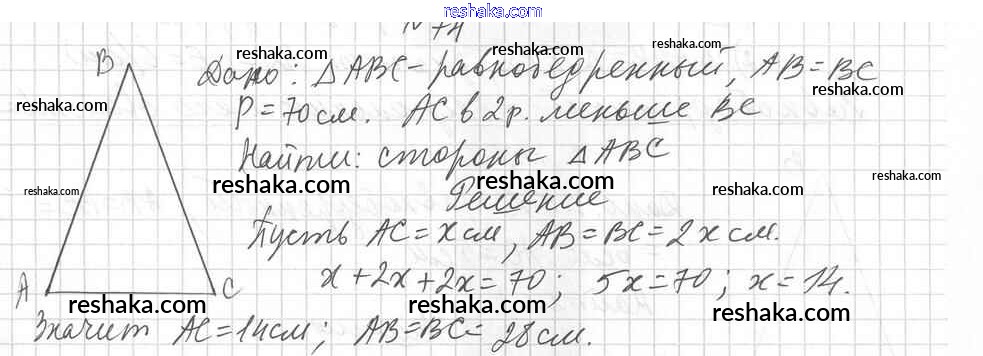 reshaka.com
N 74
reshaka.com reshaka.com
B Дано: △ABC - равнобедренный, AB = BC
reshaka.com reshaka.com
P = 70 см. AC в 2 р. меньше BC
reshaka.com reshaka.com
Найти: стороны △ABC
reshaka.com reshaka.com reshaka.com reshaka.com reshaka.com
Решение
Пусть AC = x см, AB = BC = 2x см.
reshaka.com reshaka.com reshaka.com
x + 2x + 2x = 70; 5x = 70; x = 14.
A C
reshaka.com reshaka.com reshaka.com
Значит AC = 14 см; AB = BC = 28 см.
reshaka.com reshaka.com reshaka.com